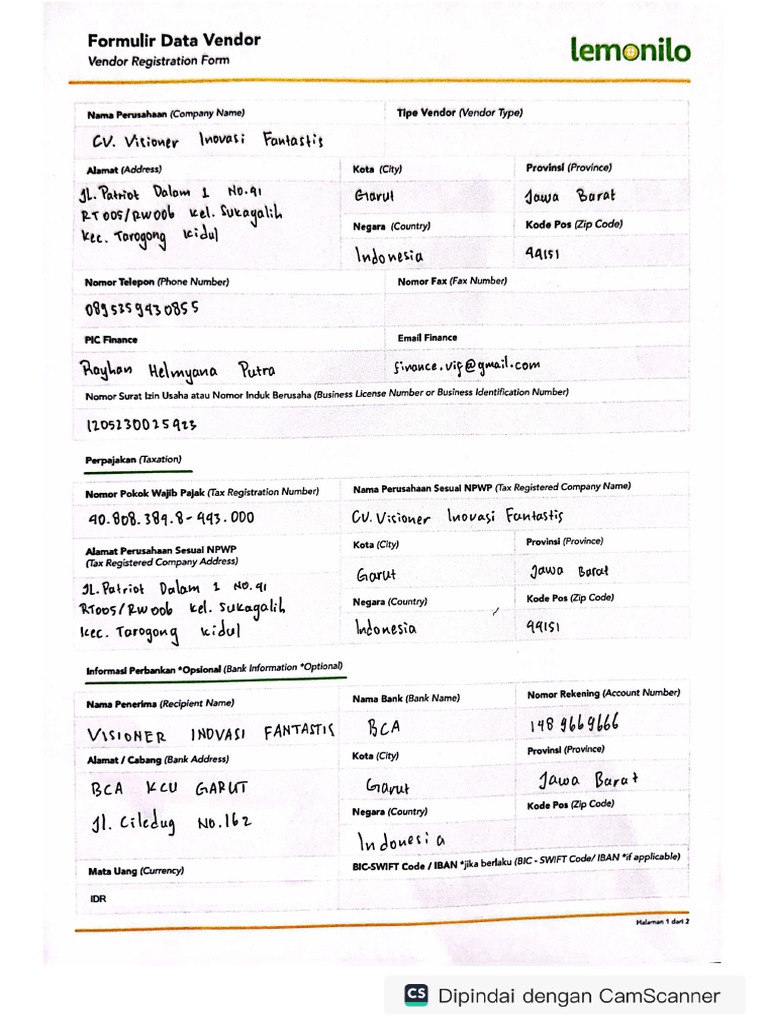 Formulir Data Vendor
Vendor Registration Form
lemonilo
Nama Perusahaan (Company Name)
Tipe Vendor (Vendor Type)
CV. Visioner Inovasi Fantastis
Alamat (Address)
Kota (City)
Provinsi (Province)
JL. Patriot Dalam 1 No.91
RT005/RW006 Kel. Sukagalih
Kec. Tarogong Kidul
Garut
Jawa Barat
Negara (Country)
Kode Pos (Zip Code)
Indonesia
44151
Nomor Telepon (Phone Number)
Nomor Fax (Fax Number)
0895359430855
PIC Finance
Email Finance
Rayhan Helmyana Putra
finance.vif@gmail.com
Nomor Surat Izin Usaha atau Nomor Induk Berusaha (Business License Number or Business Identification Number)
1205230025923
Perpajakan (Taxation)
Nomor Pokok Wajib Pajak (Tax Registration Number)
Nama Perusahaan Sesuai NPWP (Tax Registered Company Name)
40.808.389.8-443.000
CV. Visioner Inovasi Fantastis
Alamat Perusahaan Sesuai NPWP
(Tax Registered Company Address)
Kota (City)
Provinsi (Province)
JL. Patriot Dalam 1 No.91
RT005/RW006 Kel. Sukagalih
Kec. Tarogong Kidul
Garut
Jawa Barat
Negara (Country)
Kode Pos (Zip Code)
Indonesia
44151
Informasi Perbankan *Opsional (Bank Information *Optional)
Nama Penerima (Recipient Name)
Nama Bank (Bank Name)
Nomor Rekening (Account Number)
VISIONER INOVASI FANTASTIS
BCA
148 9669666
Alamat / Cabang (Bank Address)
Kota (City)
Provinsi (Province)
BCA KCU GARUT
Jl. Ciledug No.162
Garut
Jawa Barat
Negara (Country)
Kode Pos (Zip Code)
Indonesia
Mata Uang (Currency)
BIC-SWIFT Code / IBAN *jika berlaku (BIC - SWIFT Code/ IBAN *if applicable)
IDR
Halaman 1 dari 2
CS Dipindai dengan CamScanner